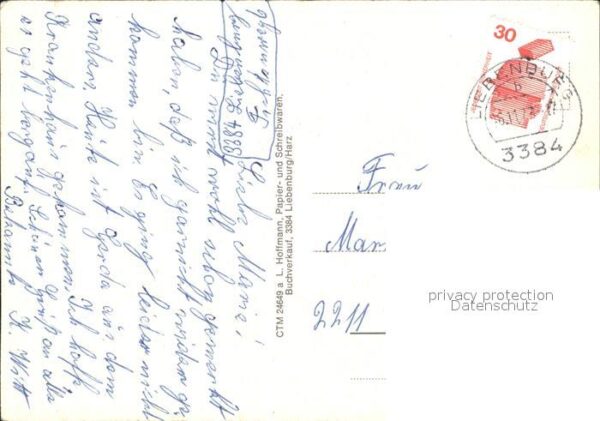 Liebe Marie!
Du wirst wohl schon gemerkt
haben, daß ich garnicht wieder ge-
kommen bin Es ging leider nicht
anders. Heute ist Gerda aus dem
Krankenhaus gekommen. Ich hoffe
es geht bergauf. Schönen Gruß an alle
Bekannte K. Witt
CTM 24649 a L. Hoffmann, Papier- und Schreibwaren,
Buchverkauf, 3384 Liebenburg/Harz
30
LIEBENBURG
3384
Frau
Mar
2211
privacy protection
Datenschutz